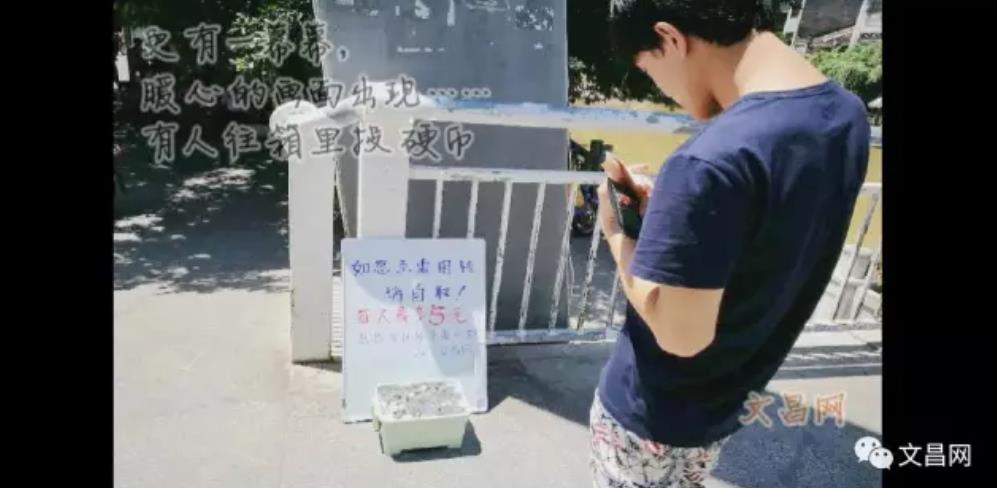 更有一幕幕，
暖心的画面出现……
有人往箱里投硬币
如您急需用钱
请自取！
每人最多5元
文昌网
文昌网